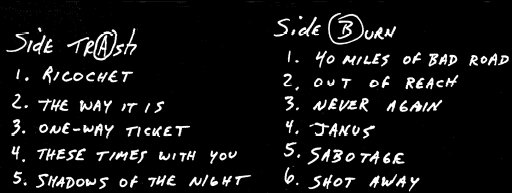 Side TRAsh
1. RICOCHET
2. THE WAY IT IS
3. ONE-WAY TICKET
4. THESE TIMES WITH YOU
5. SHADOWS OF THE NIGHT
Side BURN
1. 40 MILES OF BAD ROAD
2. OUT OF REACH
3. NEVER AGAIN
4. JANUS
5. SABOTAGE
6. SHOT AWAY